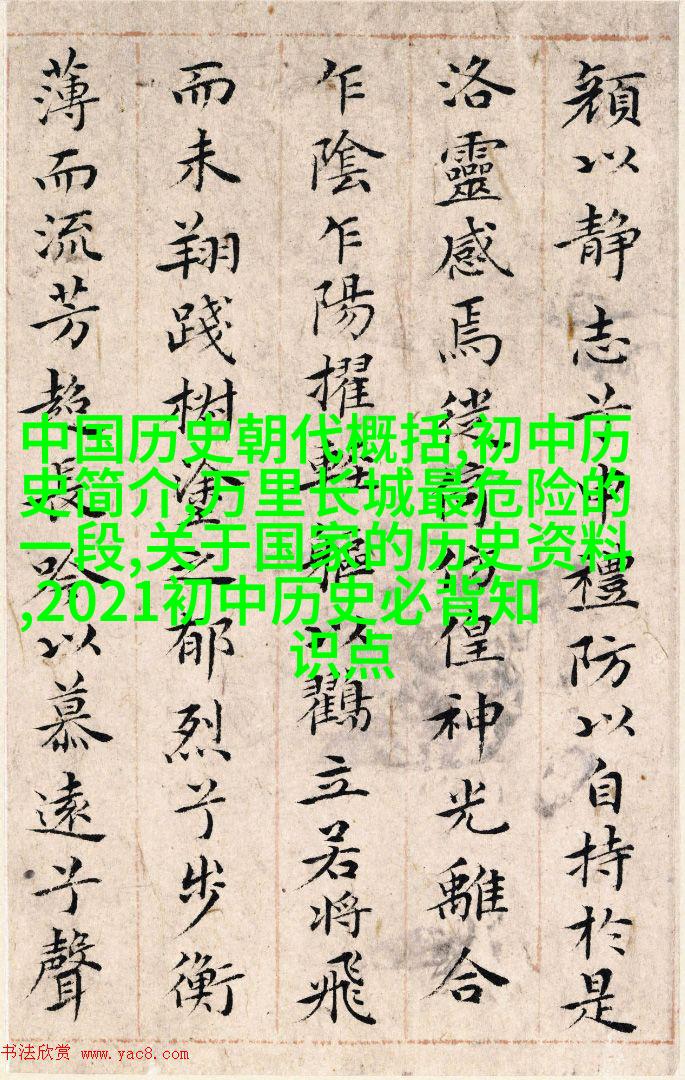 顔以静志兮申禮防以自持於是
洛靈感焉徙倚傍偟神光離合
乍陰乍陽擢輕軀以鶴立若将飛
而未翔踐樹塗之郁烈兮步衡
薄而流芳超長吟以慕遠兮聲
中国历史朝代概括,初中历
史简介,万里长城最危险的
一段,关于国家的历史资料
,2021初中历史必背知
识点
书法欣赏 www.yac8.com